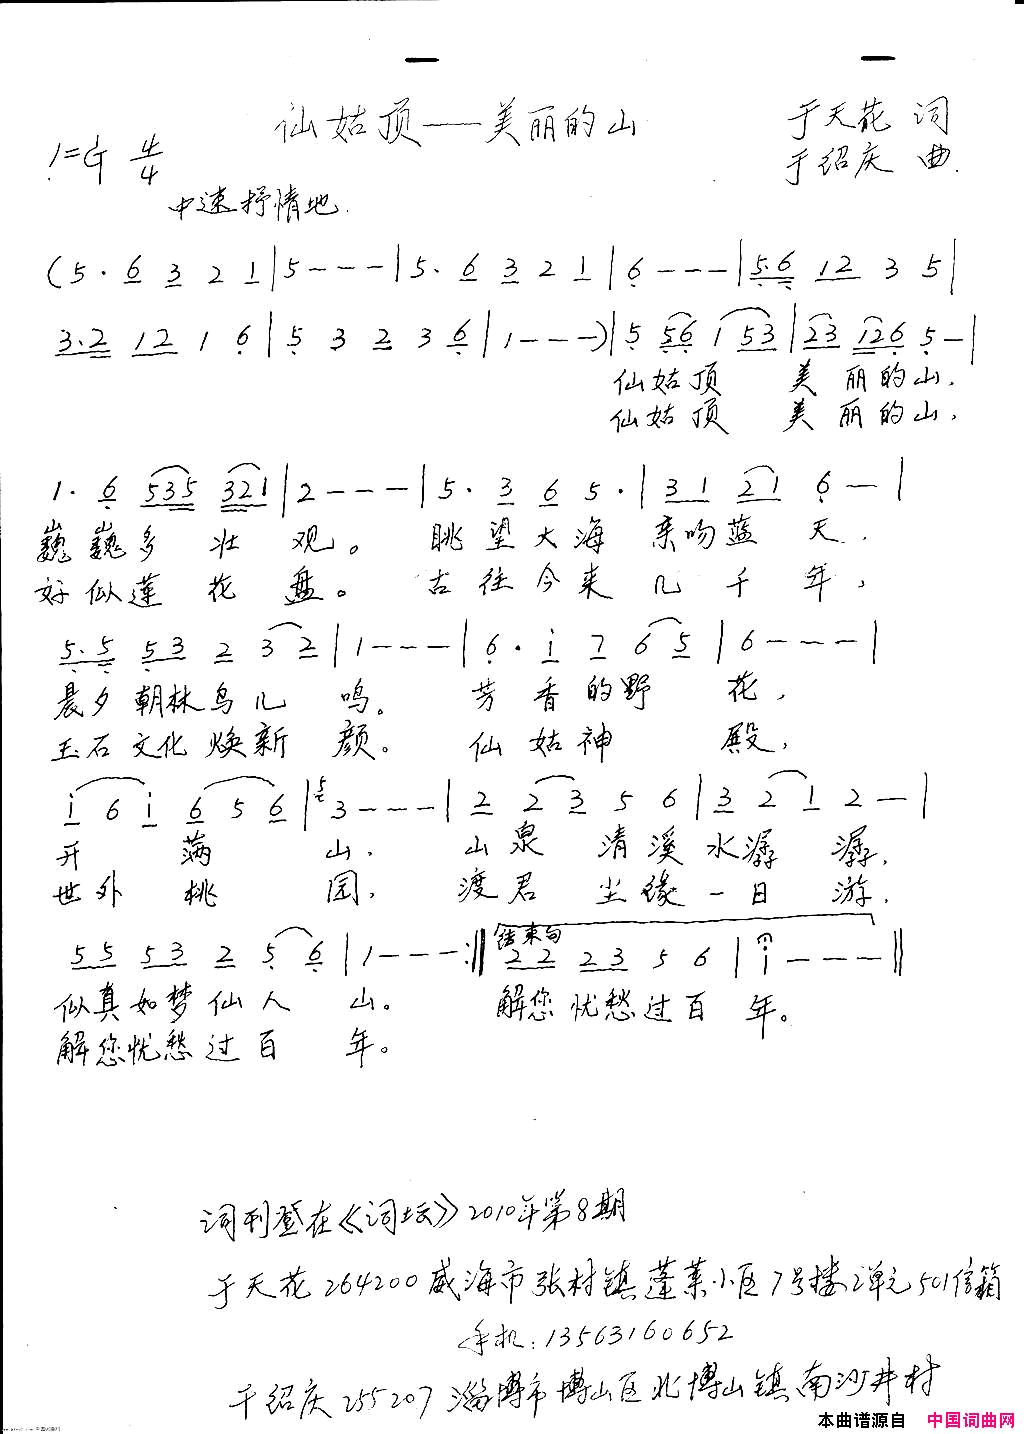 仙姑顶——美丽的山
于天花 词
于绍庆 曲
1=G 4/4
中速抒情地
(5· 6 3 2 1|5---|5· 6 3 2 1|6---|5·6 12 3 5|
3·2 12 1 6|5 3 2 3 6|1---)|5 56 1 53|23 126 5-|
仙姑顶 美丽的山,
仙姑顶 美丽的山,
1· 6 535 321|2---|5· 3 6 5·|31 21 6-|
巍巍多壮观。 眺望大海亲吻蓝天,
好似莲花盘。 古往今来几千年,
5·5 53 2 32|1---|6· i 7 65|6---|
晨夕朝林鸟儿鸣。 芳香的野花,
玉石文化焕新颜。 仙姑神殿,
i 6 i 6 5 6|5 3---|2 23 5 6|3 21 2-|
开满山, 山泉清溪水潺潺,
世外桃园, 渡君尘缘一日游,
55 53 2 56|1---:‖ 结束句 22 23 5 6|i---‖
似真如梦仙人山。 解您忧愁过百年。
解您忧愁过百年。
词刊登在《词坛》2010年第8期
于天花 264200 威海市张村镇蓬莱小区7号楼2单元501信箱
手机:13563160652
于绍庆 255207 淄博市博山区北博山镇南沙井村
本曲谱源自 中国词曲网